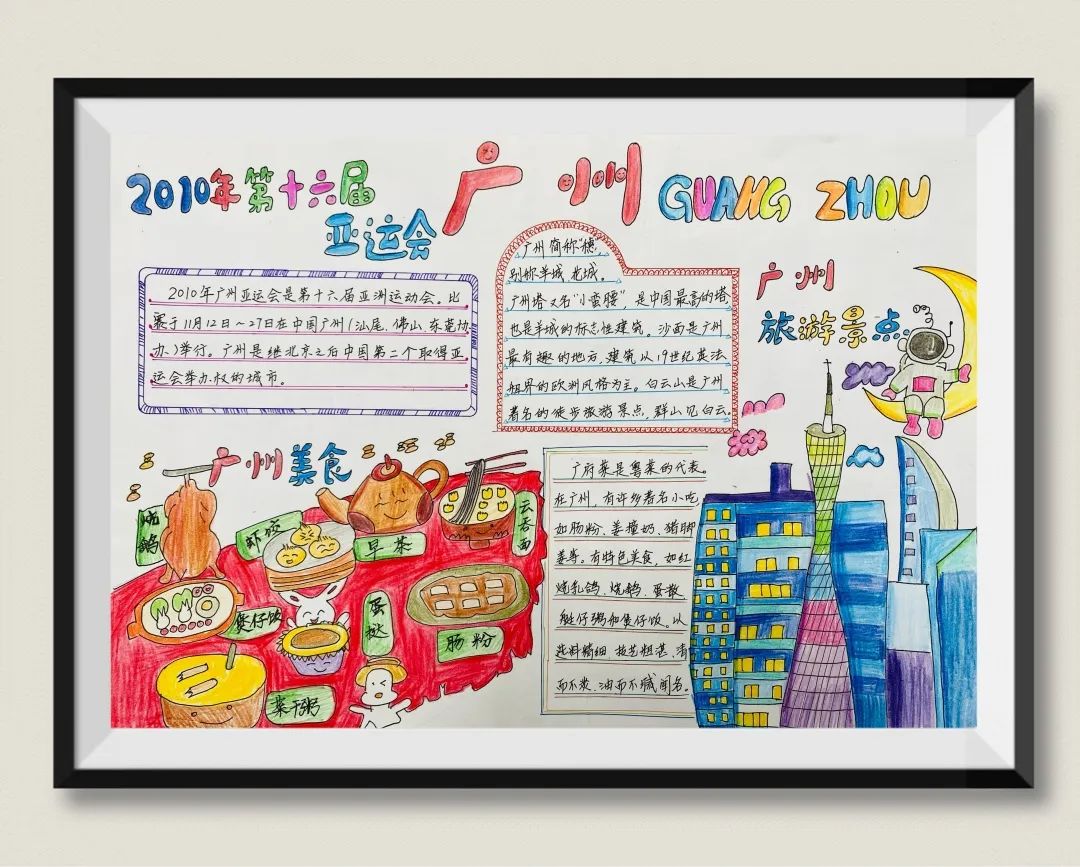 2010年第十六届
亚运会
广州 GUANG ZHOU
2010年广州亚运会是第十六届亚洲运动会。比
赛于11月12日~27日在中国广州(汕尾、佛山、东莞协
办)举行。广州是继北京之后中国第二个取得亚
运会举办权的城市。
广州简称"穗",
别称羊城、花城。
广州塔又名"小蛮腰",是中国最高的塔
也是羊城的标志性建筑。沙面是广州
最有趣的地方,建筑以19世纪英法
租界的欧洲风格为主。白云山是广州
著名的徒步旅游景点,群山见白云。
广州
旅游景点
广州美食
烧鹅
虾饺
早茶
云吞面
煲仔饭
蛋挞
肠粉
菜干粥
广府菜是粤菜的代表。
在广州,有许多著名小吃
如肠粉、姜撞奶、猪脚
姜等。有特色美食,如红
烧乳鸽、烧鹅、蛋散
艇仔粥和煲仔饭。以
选料精细、技艺粗湛、清
而不淡、油而不腻闻名。